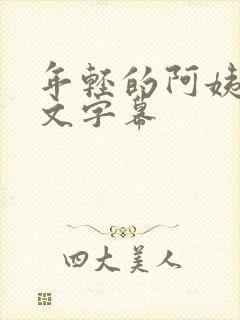 年轻的阿姨
文字幕
四大美人